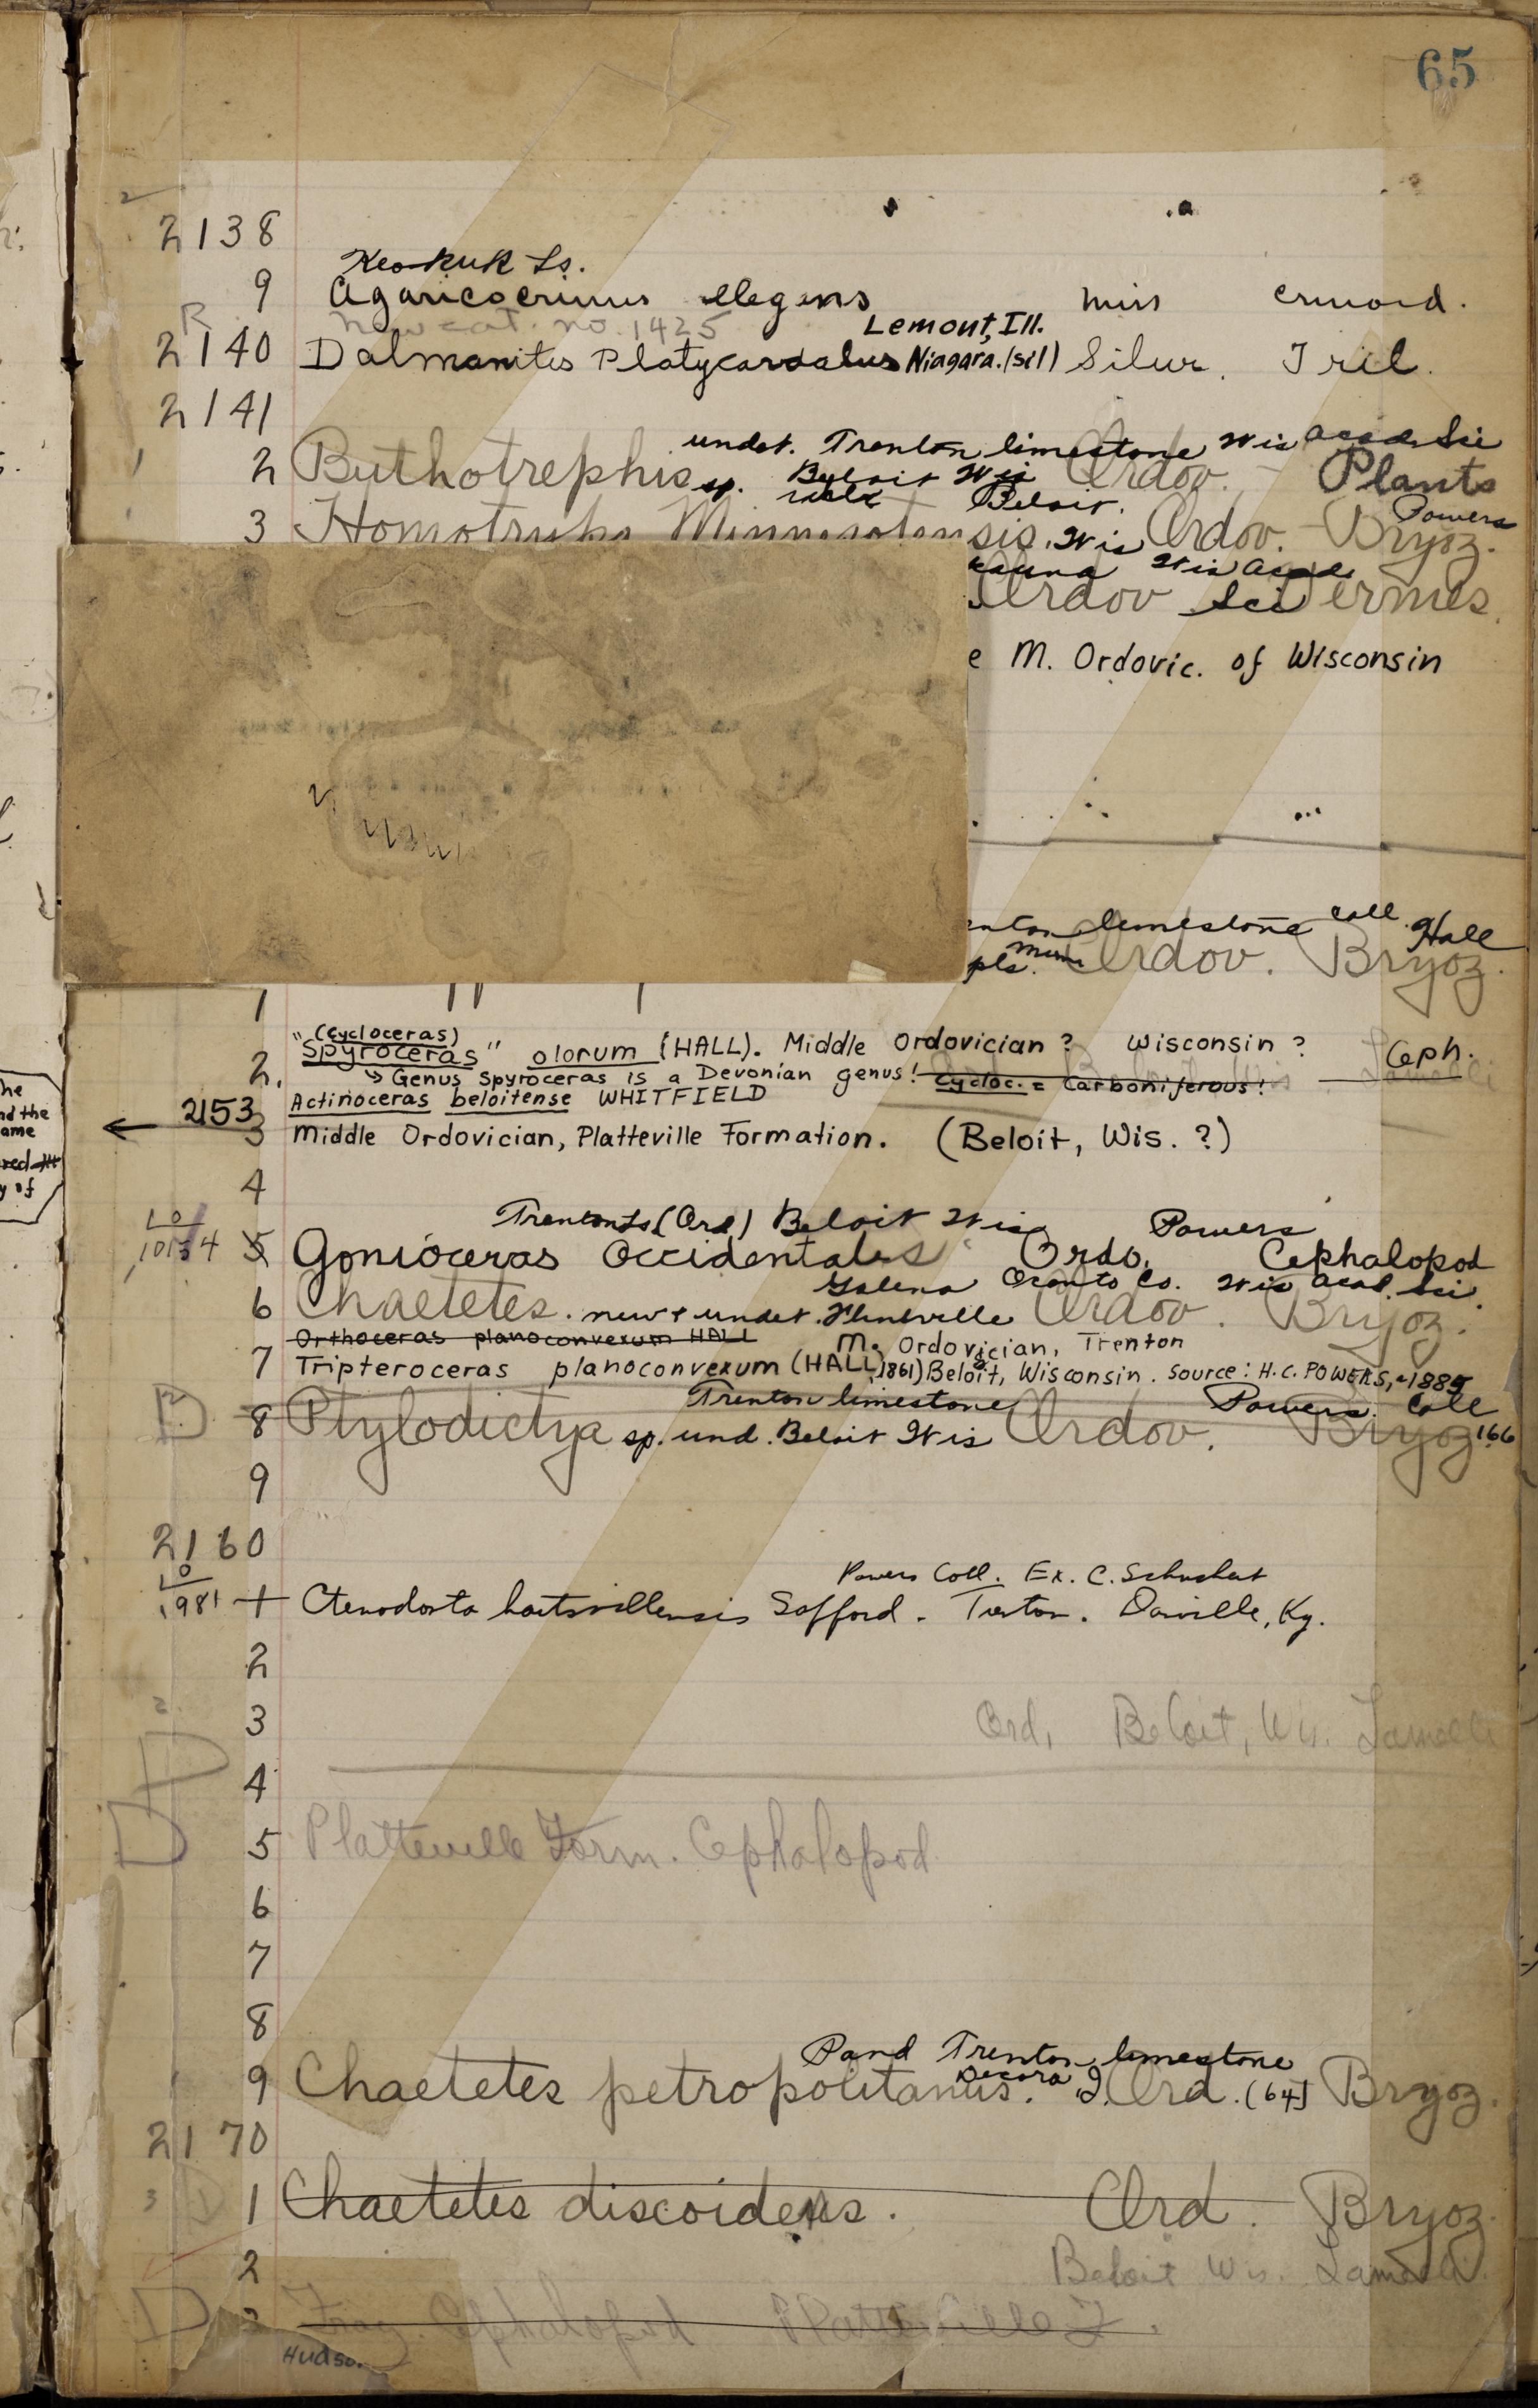 65
2138
Keokuk Ls.
9 Agaricocrinus elegans miss crinoid.
R New cat. no. 1425 Lemont, Ill.
2140 Dalmanites Platycaudalus Niagara. (sil) Silur. Tril.
2141
undet. Trenton limestone Wis Acad. Sci
2 Buthotrephis sp. Beloit Wis Ordov. Plants
Beloit. Powers
3 Homotrypa Minnesotensis. Wis Ordov. Bryoz.
Wis Acad.
Ordov Sci Vermes.
e M. Ordovic. of Wisconsin
enton limestone coll. Hall
pls. Minn Ordov. Bryoz.
1 " "
"(Cycloceras)
2. Spyroceras" olorum (HALL). Middle Ordovician? Wisconsin? Ceph.
→ Genus Spyroceras is a Devonian genus! Cycloc. = Carboniferous!
Actinoceras beloitense WHITFIELD
2153
3 Middle Ordovician, Platteville Formation. (Beloit, Wis. ?)
4
Trenton Ls (Ord) Beloit Wis Powers
5 Gonioceras Occidentales Ordo. Cephalopod
Galena Oconto Co. Wis Acad. Sci.
6 Chaetetes. new & undet. Flintville Ordov. Bryoz.
Orthoceras planoconvexum HALL M. Ordovician, Trenton
7 Tripteroceras planoconvexum (HALL, 1861) Beloit, Wisconsin. Source: H.C. POWERS, ~1885
Trenton limestone Powers Coll
8 Ptylodictya sp. und. Beloit Wis Ordov. Bryoz 166
9
2160
Powers Coll. Ex. C. Schuchert
1981 1 Ctenodonta hartsvillensis Safford. Trenton. Danville, Ky.
2
3 Ord, Beloit, Wis. Lamelli
4
5 Platteville Form. Cephalopod
6
7
8
Pand Trenton limestone
9 Chaetetes petropolitanus. Decora I. Ord. (64) Bryoz.
2170
1 Chaetetes discoideus. Ord. Bryoz.
2 Beloit Wis. Lamelli.
3 Frag. Cephalopod Platteville F.